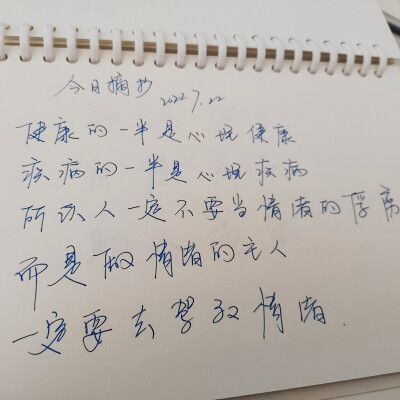 今日摘抄 2022.7.22
健康的一半是心理健康
疾病的一半是心理疾病
所以人一定不要当情绪的俘虏
而是做情绪的主人
一定要去驾驭情绪.